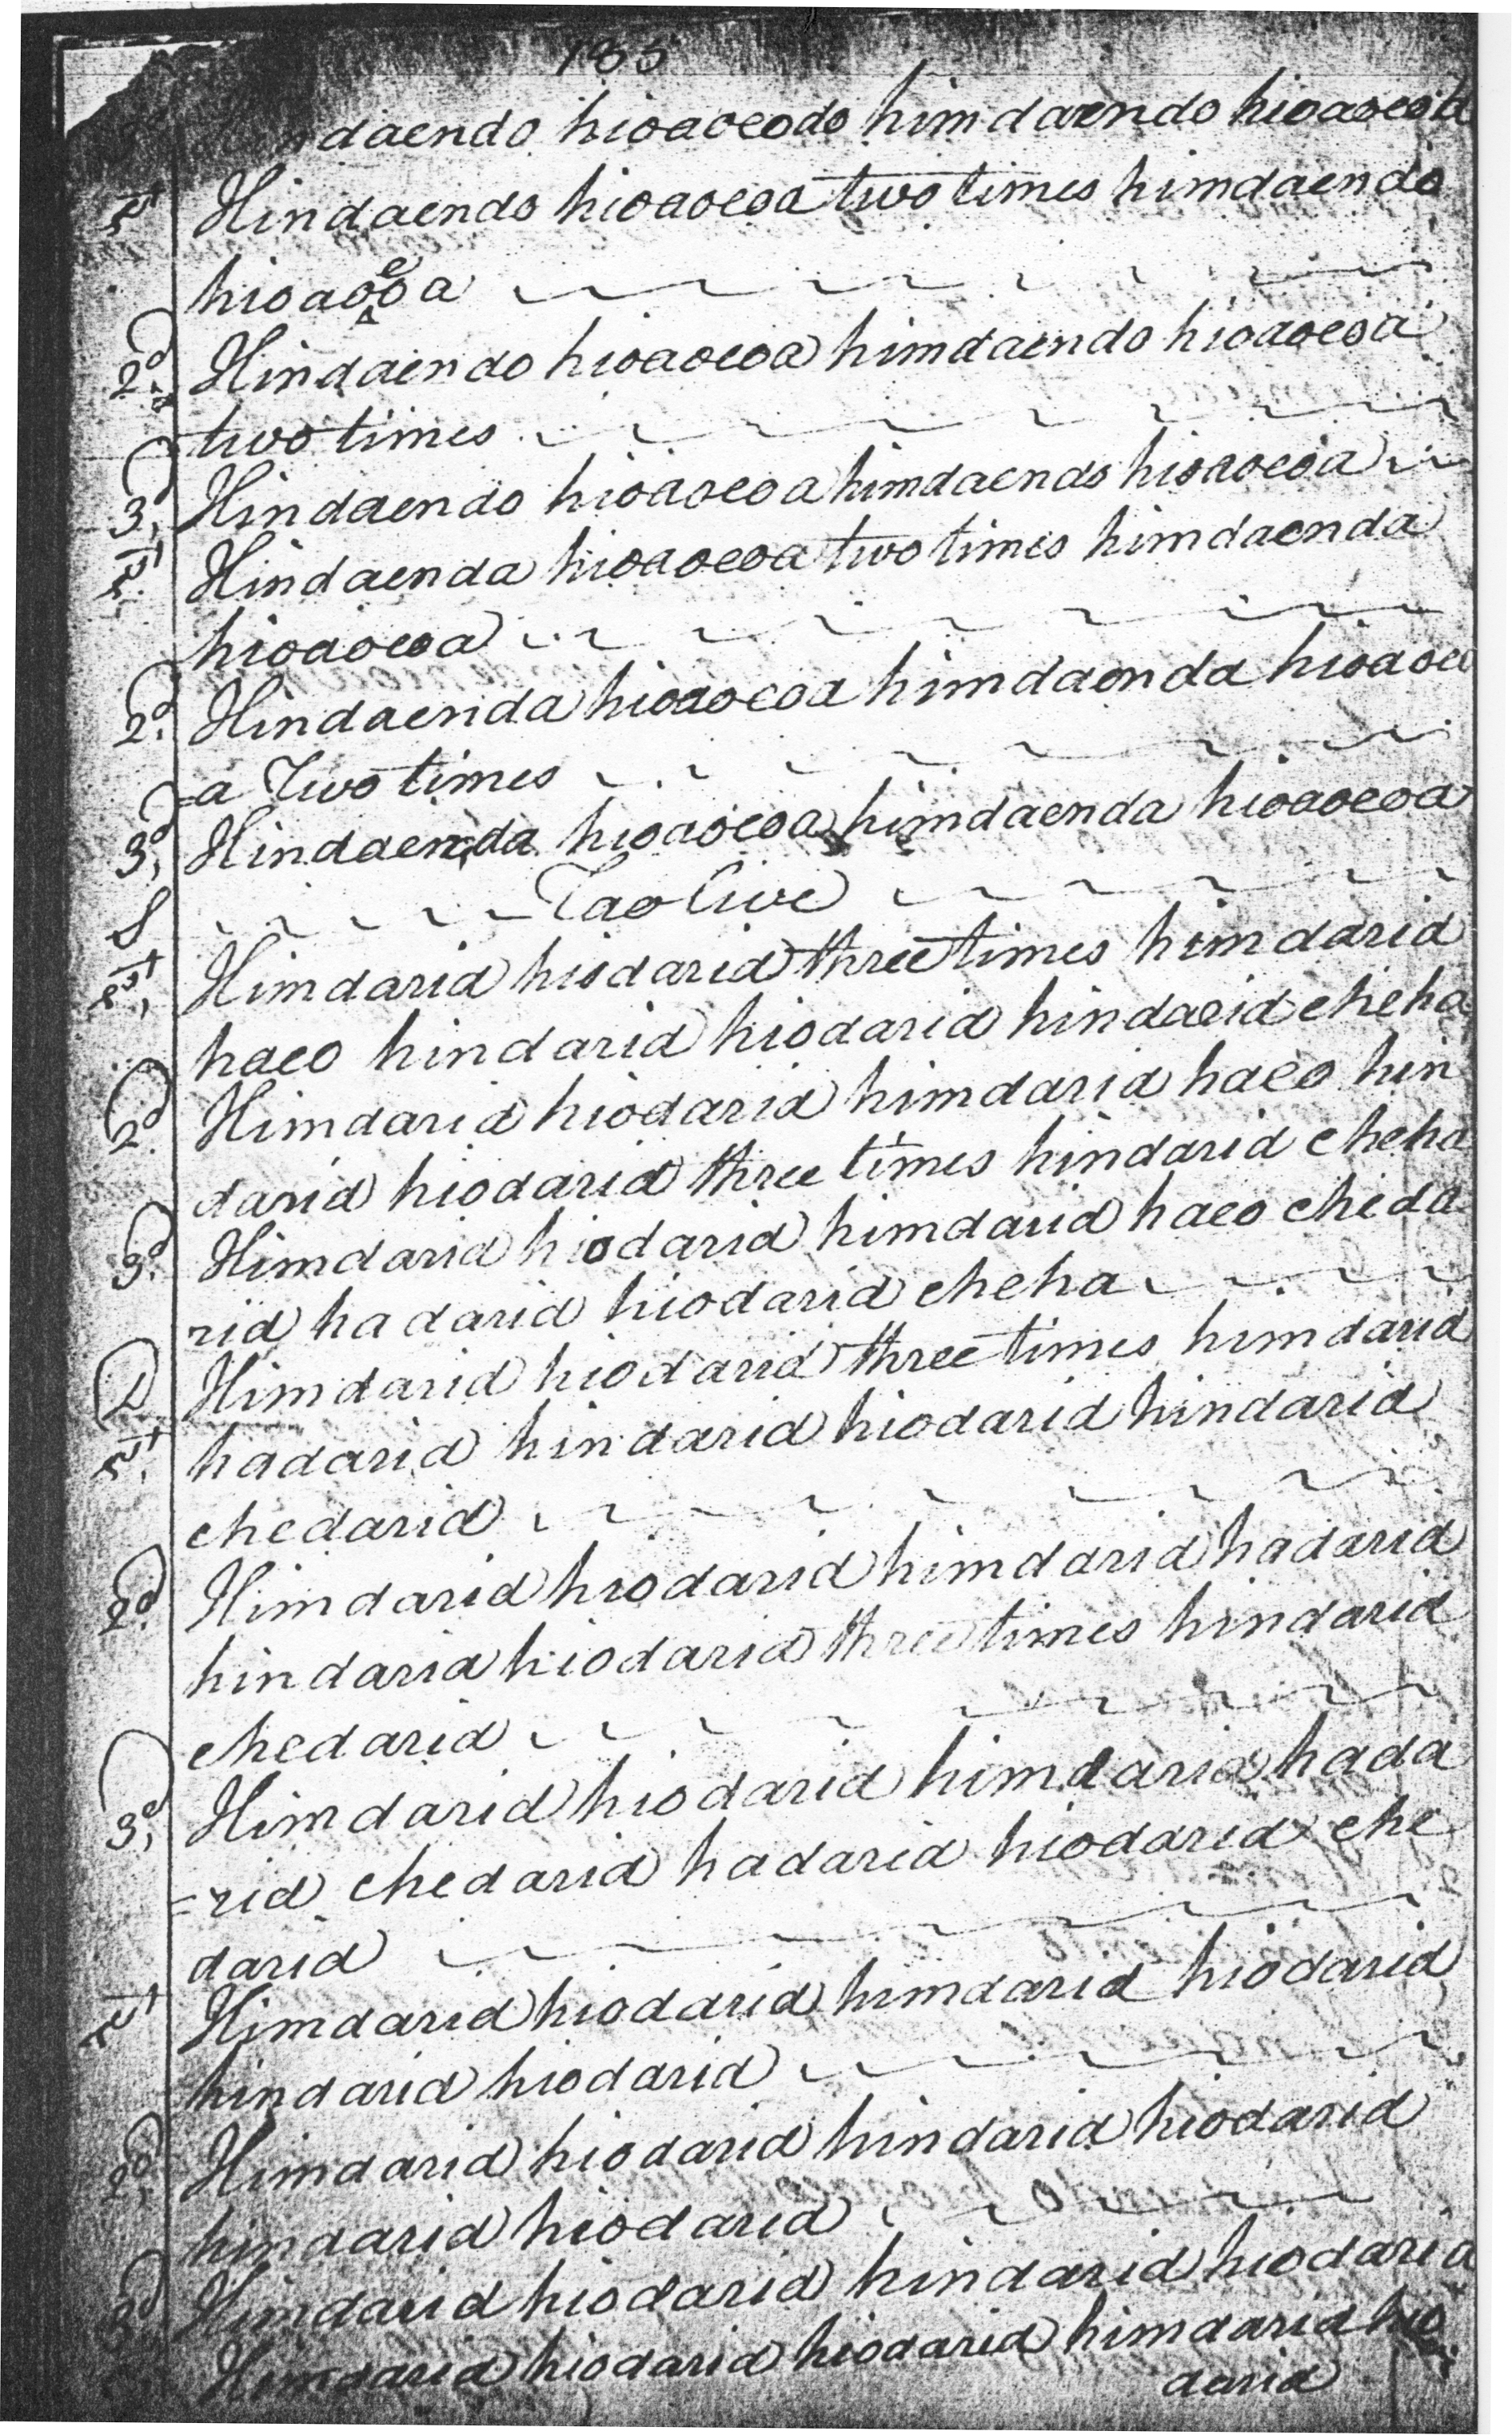 185
daendo hioaoeodo himdaendo hioaoeoa
1st Hindaendo hioaoeoa two times himdaendo
hioaoeoa
2d Hindaendo hioaoeoa himdaendo hioaoeoa
two times
3d, Hindaendo hioaoeoa himdaendo hioaoeoa
1st Hindaenda hioaoeoa two times himdaenda
hioaoeoa
2d. Hindaenda hioaoeoa himdaenda hioaoeo
=a Two times
3d, Hindaenda hioaoeoa himdaenda hioaoeoa
S Taolive
1st, Himdarid hiodarid three times himdarid
haeo hindarid hiodarid hindarid cheha
2d. Himdarid hiodarid himdarid haeo hin
darid hiodarid three times hindarid cheha
3d. Himdarid hiodarid himdarid haeo cheda
rid hadarid hiodarid cheha
D 1st. Himdarid hiodarid three times himdarid
hadarid hindarid hiodarid hindarid
chedarid
2d. Himdarid hiodarid himdarid hadarid
hindarid hiodarid three times hindarid
chedarid
3d, Himdarid hiodarid himdarid hada
=rid chedarid hadarid hiodarid che
darid
1st Himdarid hiodarid himdarid hiodarid
hindarid hiodarid
2d, Himdarid hiodarid hindarid hiodarid
hindarid hiodarid
3d Himdarid hiodarid hindarid hiodarid
Himdarid hiodarid hiodarid himdarid hio
darid